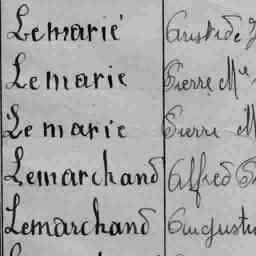 Lemarié Aristide
Lemarie Pierre Mie
Le marie Pierre M
Lemarchand Alfred
Lemarchand Augustin